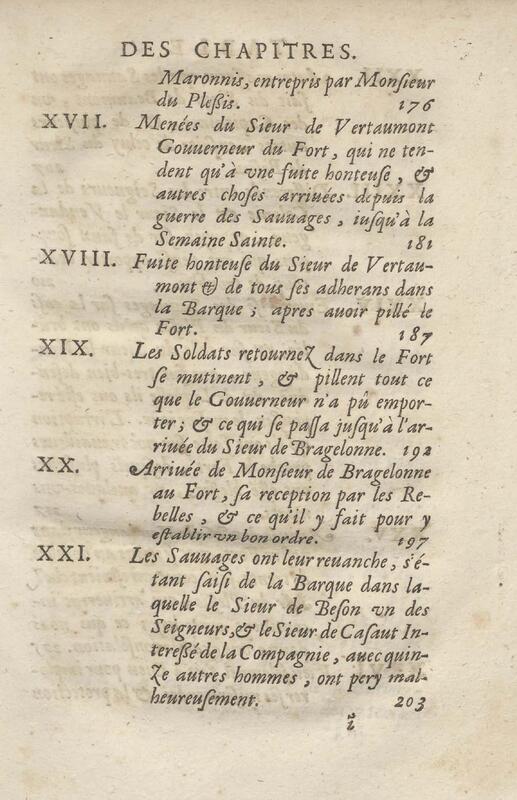 DES CHAPITRES.
Maronnis, entrepris par Monsieur
du Plessis. 176
XVII. Menées du Sieur de Vertaumont
Gouuerneur du Fort, qui ne ten-
dent qu'à vne fuite honteuse, &
autres choses arriuées depuis la
guerre des Sauuages, iusqu'à la
Semaine Sainte. 181
XVIII. Fuite honteuse du Sieur de Vertau-
mont & de tous ses adherans dans
la Barque; apres auoir pillé le
Fort. 187
XIX. Les Soldats retournez dans le Fort
se mutinent, & pillent tout ce
que le Gouuerneur n'a pû empor-
ter; & ce qui se passa jusqu'à l'ar-
riuée du Sieur de Bragelonne. 192
XX. Arriuée de Monsieur de Bragelonne
au Fort, sa reception par les Re-
belles, & ce qu'il y fait pour y
establir vn bon ordre. 197
XXI. Les Sauuages ont leur reuanche, s'é-
tant saisi de la Barque dans la-
quelle le Sieur de Beson vn des
Seigneurs, & le Sieur de Casaut In-
teressé de la Compagnie, auec quin-
ze autres hommes, ont pery mal-
heureusement. 203
ĩ